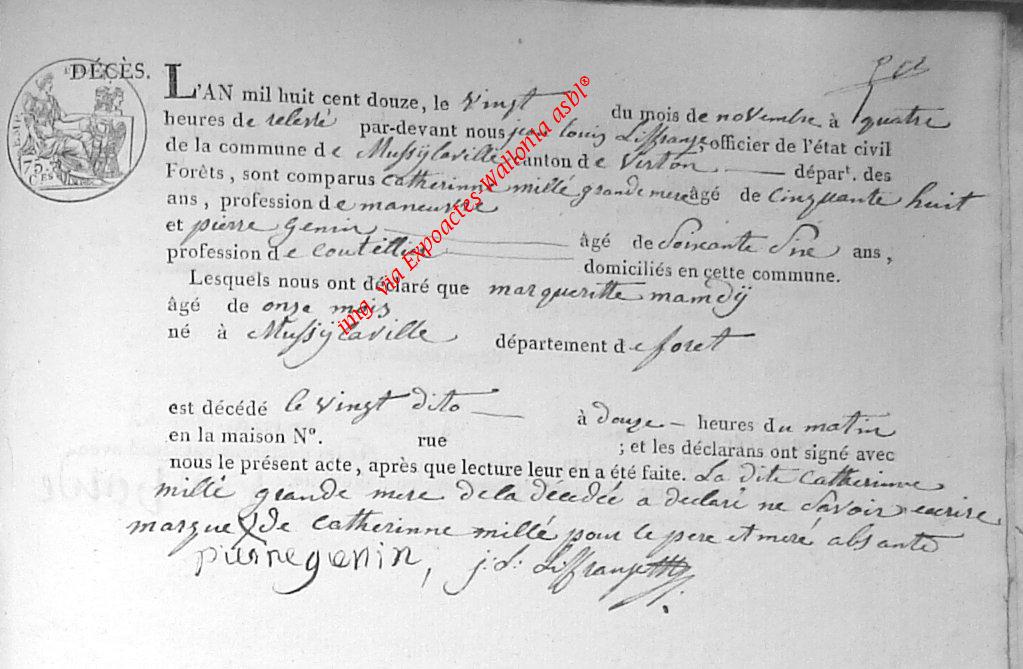 DÉCÈS. L'AN mil huit cent douze, le vingt du mois de novembre à quatre
heures de relevé par-devant nous jean louis Liffrange, officier de l'état civil
de la commune de Mussÿlaville canton de virton départ. des
Forêts, sont comparus catherinne millé grande mere âgé de cinquante huit
ans, profession de maneuvre
et pierre genin âgé de Soixante Sixe ans,
profession de coutellier domiciliés en cette commune.
Lesquels nous ont déclaré que margueritte mamdÿ
âgé de onze mois
né à Mussÿlaville département de foret
est décédé le vingt dito à douze heures du matin
en la maison N°. rue ; et les déclarans ont signé avec
nous le présent acte, après que lecture leur en a été faite. La dite catherinne
millé grande mere de la décedée a declaré ne Savoir escrire
marque de catherinne millé pour le pere et meré absante
pierre genin, j: L: Liffrange
img. via Expoactes Wallonia asbl®
EMP
75
CES